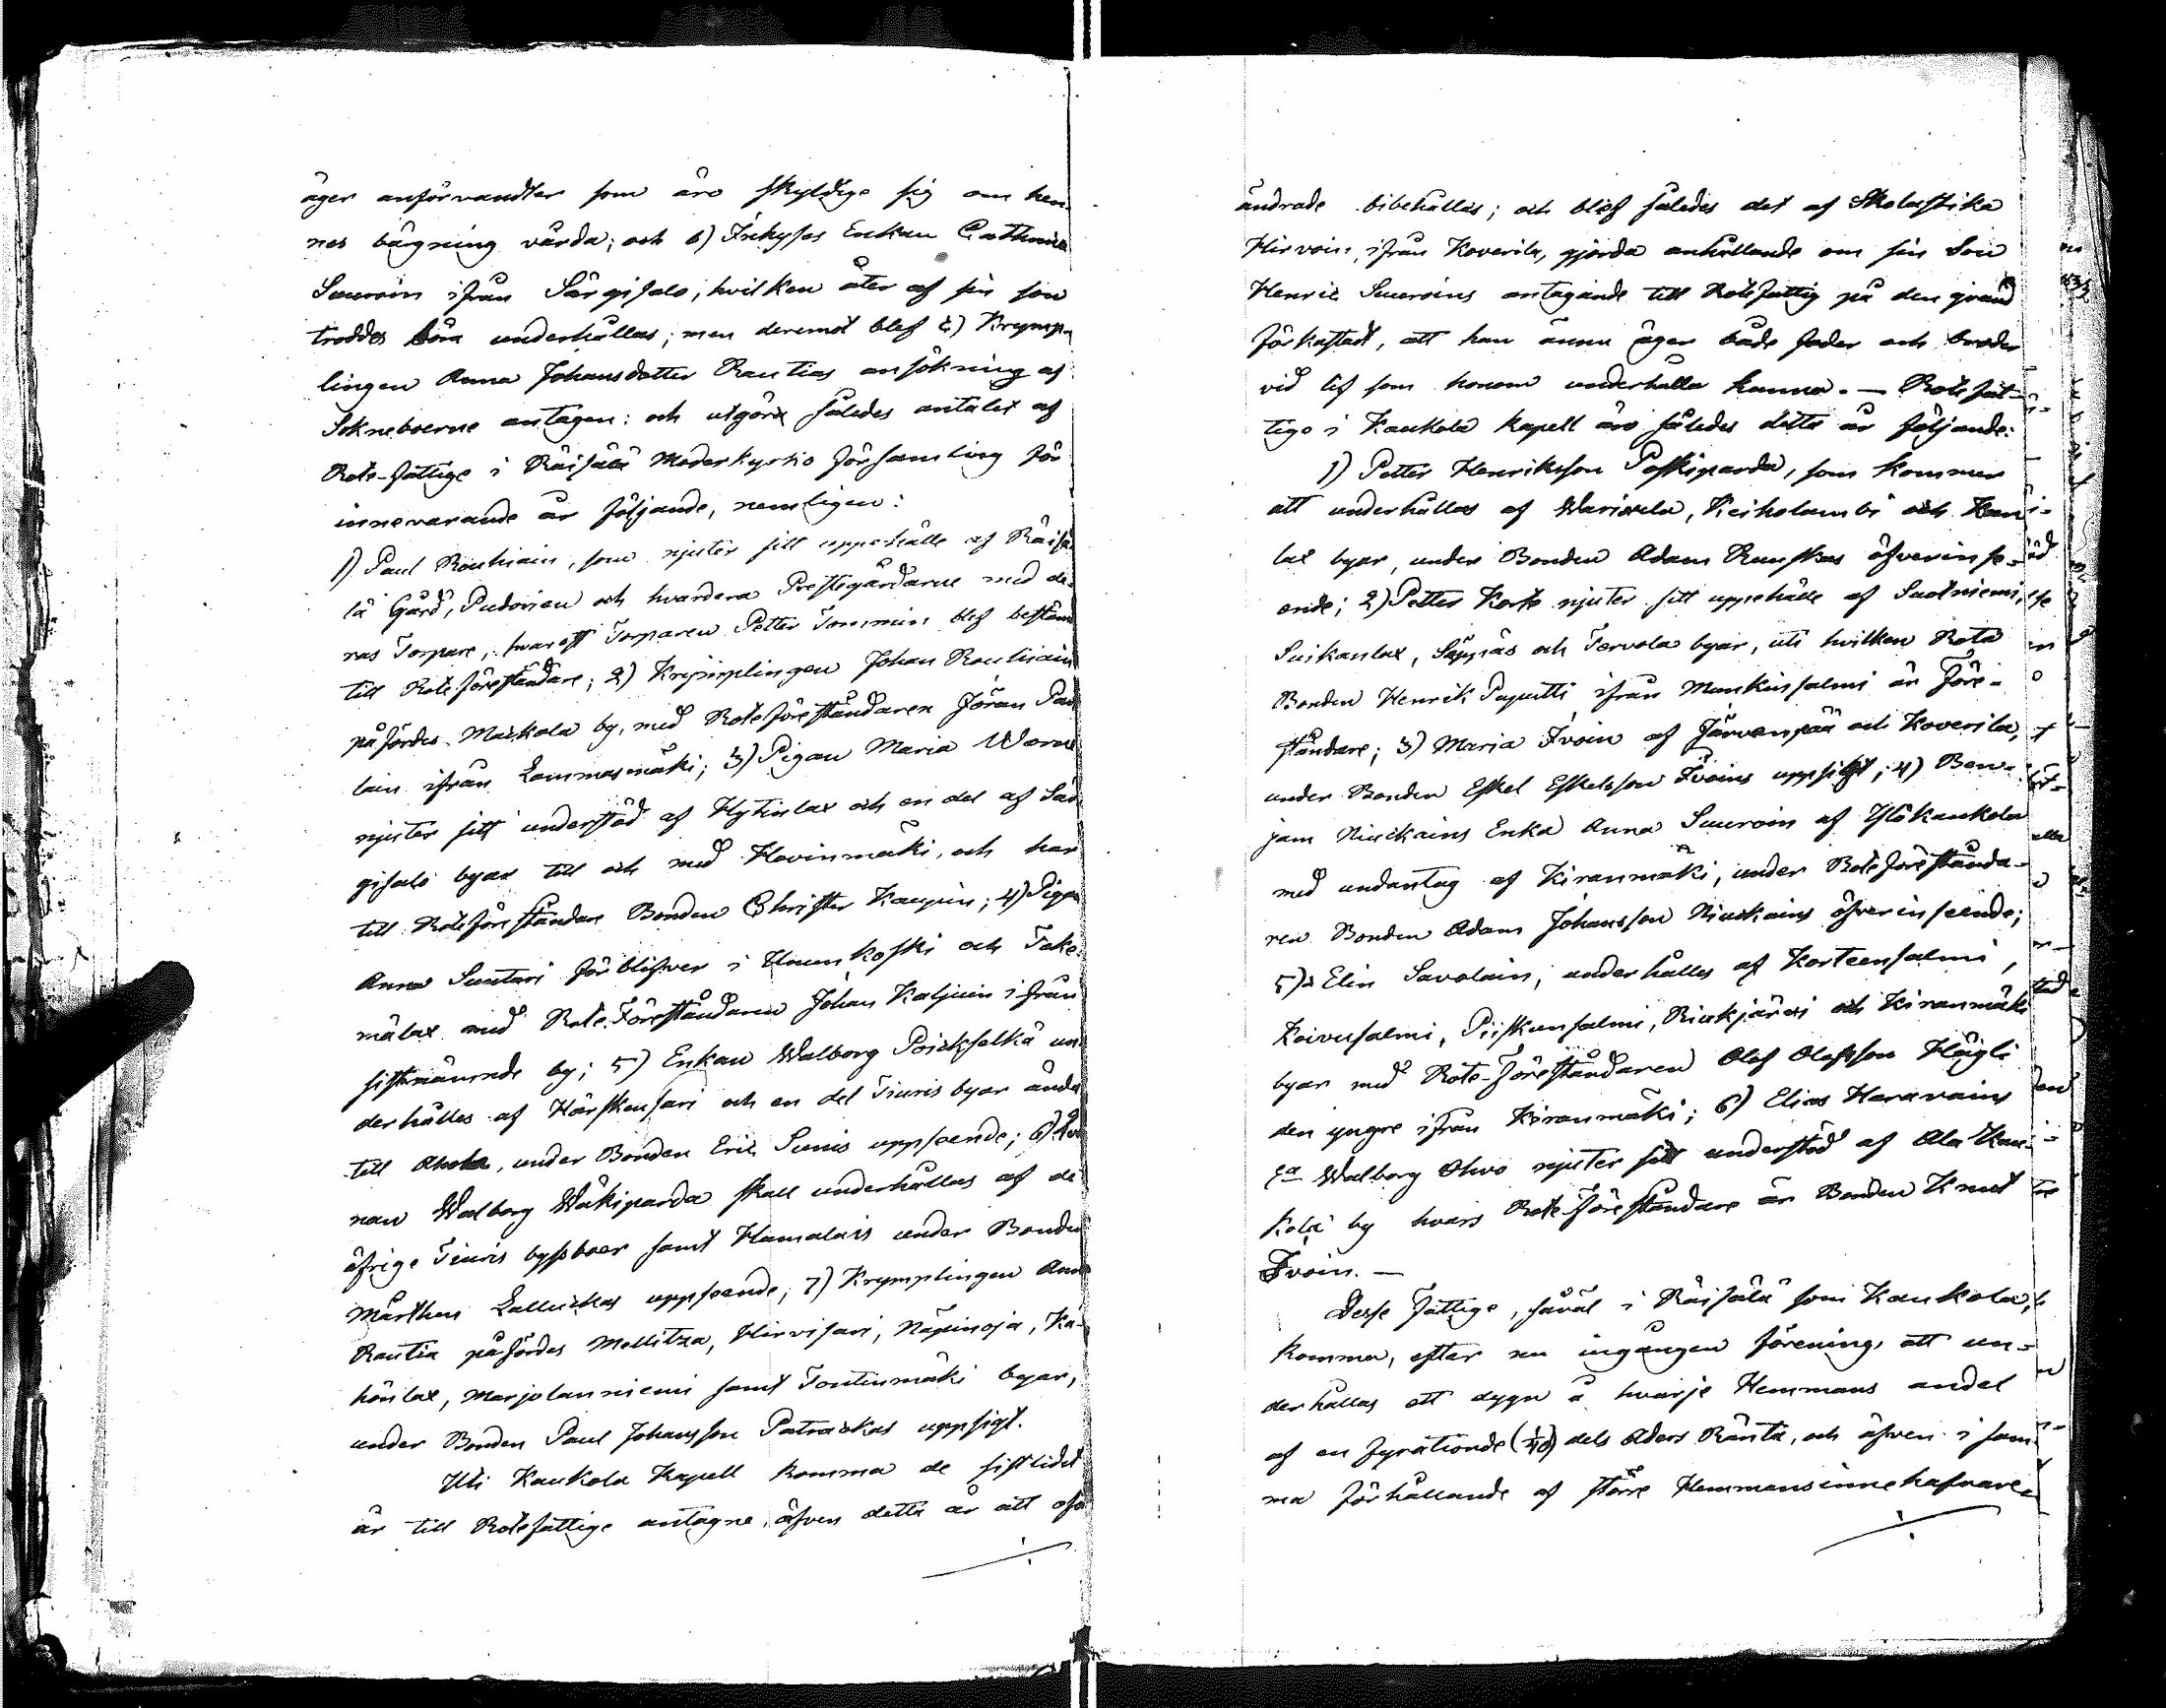 äger anförvandter som äro skyldige sig om hen-
nes bärgning vårda; och b) Inhyses Enkan Cathrina
Suuroin ifrån Särgisalo, hvilken åter af sin son
troddes böra underhållas; men deremot blef c) Krymp-
lingen Anna Johansdotter Rautias ansökning af
Sokneboerne antagen: och utgöra således antalet af
Rote-fattige i Räisälä Moderkyrko församling för
innevarande år följande, nemligen:
1) Paul Rouhiain, som njuter sitt uppehälle af Räisä-
lä Gård, Pudorien och hvardera Prestegårdarne med de-
ras Torpare, hvarest Torparen Petter Tommin blef bestämd
till Roteföreståndare; 2) Krymplingen Johan Rouhiain
påfördes Maskola by, med Roteföreståndaren Jöran Pau-
lain ifrån Lammasmäki; 3) Pigan Maria Worne
njuter sitt understöd af Hytinlax och en del af Sär-
gisalo byar till och med Hovinmäki, och har
till Roteföreståndare Bonden Christer Kaupin; 4) Pigan
Anna Suutari förblifver i Unnunkoski och Take-
mälax med Rote-Föreståndaren Johan Kaljuin ifrån
sistnämnde by; 5) Enkan Walborg Poickselkä un-
derhålles af Härskensari och en del Tiuris byar ända
till Ahola, under Bonden Eric Sunis uppseende; 6)
nan Walborg Wäkiparda skall underhållas af de
öfrige Tiuris bysboer samt Hamalais under Bonden
Mårthen Lalluckas uppseende; 7) Krymplingen Anna
Rautia påfördes Mellitza, Hirvisari, Näpinoja, Kä-
hönlax, Marjolanniemi samt Tontinmäki byar,
under Bonden Paul Johansson Patrackas uppsigt.
Uti Kaukola Kapell komma de sistlidet
år till Rotefattige antagne, äfven detta år att oför-
ändrade bibehållas; och blef således det af Skolastika
Hirvoin, ifrån Koverila, gjorda anhållande om sin Son
Henric Suuroins antagande till Rotefattig på den grund
förkastadt, att han ännu äger både fader och broder
vid lif som honom underhålla kunna. — Rotefat-
tige i Kaukola Kapell äro således detta år följande:
1) Petter Henriksson Poskiparda, som kommer
att underhållas af Warisela, Keiholambi och Kan
lax byar, under Bonden Adam Ruuskas öfverinse-
ende; 2) Petter Korte njuter sitt uppehälle af Suotniemi,
Suikanlax, Säppäs och Tervola byar, uti hvilken Rota
Bonden Henrik Paputti ifrån Munkinsalmi är Före-
ståndare; 3) Maria Ivoin af Järvenpää och Koverila,
under Bonden Eskel Eskelsson Ivoins uppsigt; 4) Ben-
jam Niuckains Enka Anna Suuroin af Ylökaukola
med undantag af Kiranmäki, under Roteförestånda-
ren Bonden Adam Johansson Niuckains öfverinseende;
5) Elin Savolain, underhålles af Korteensalmi,
Koivusalmi, Piiskunsalmi, Riukjärvi och Kiranmäki
byar med Rote-Föreståndaren Olof Olofsson Hägli
den yngre ifrån Kiranmäki; 6) Elias Haravains
Walborg Ohvo njuter sitt understöd af Ala Kau-
kola by hvars Rote-Föreståndare är Bonden Knut
Ivoin. —
Desse Fattige, såväl i Räisälä som Kaukola,
komma, efter nu ingången förening, att un-
derhållas ett dygn å hvarje Hemmans andel
af en fyrationde (1/40) dels Aders Ränta, och äfven i sam-
ma förhållande af större Hemmansinnehafvare